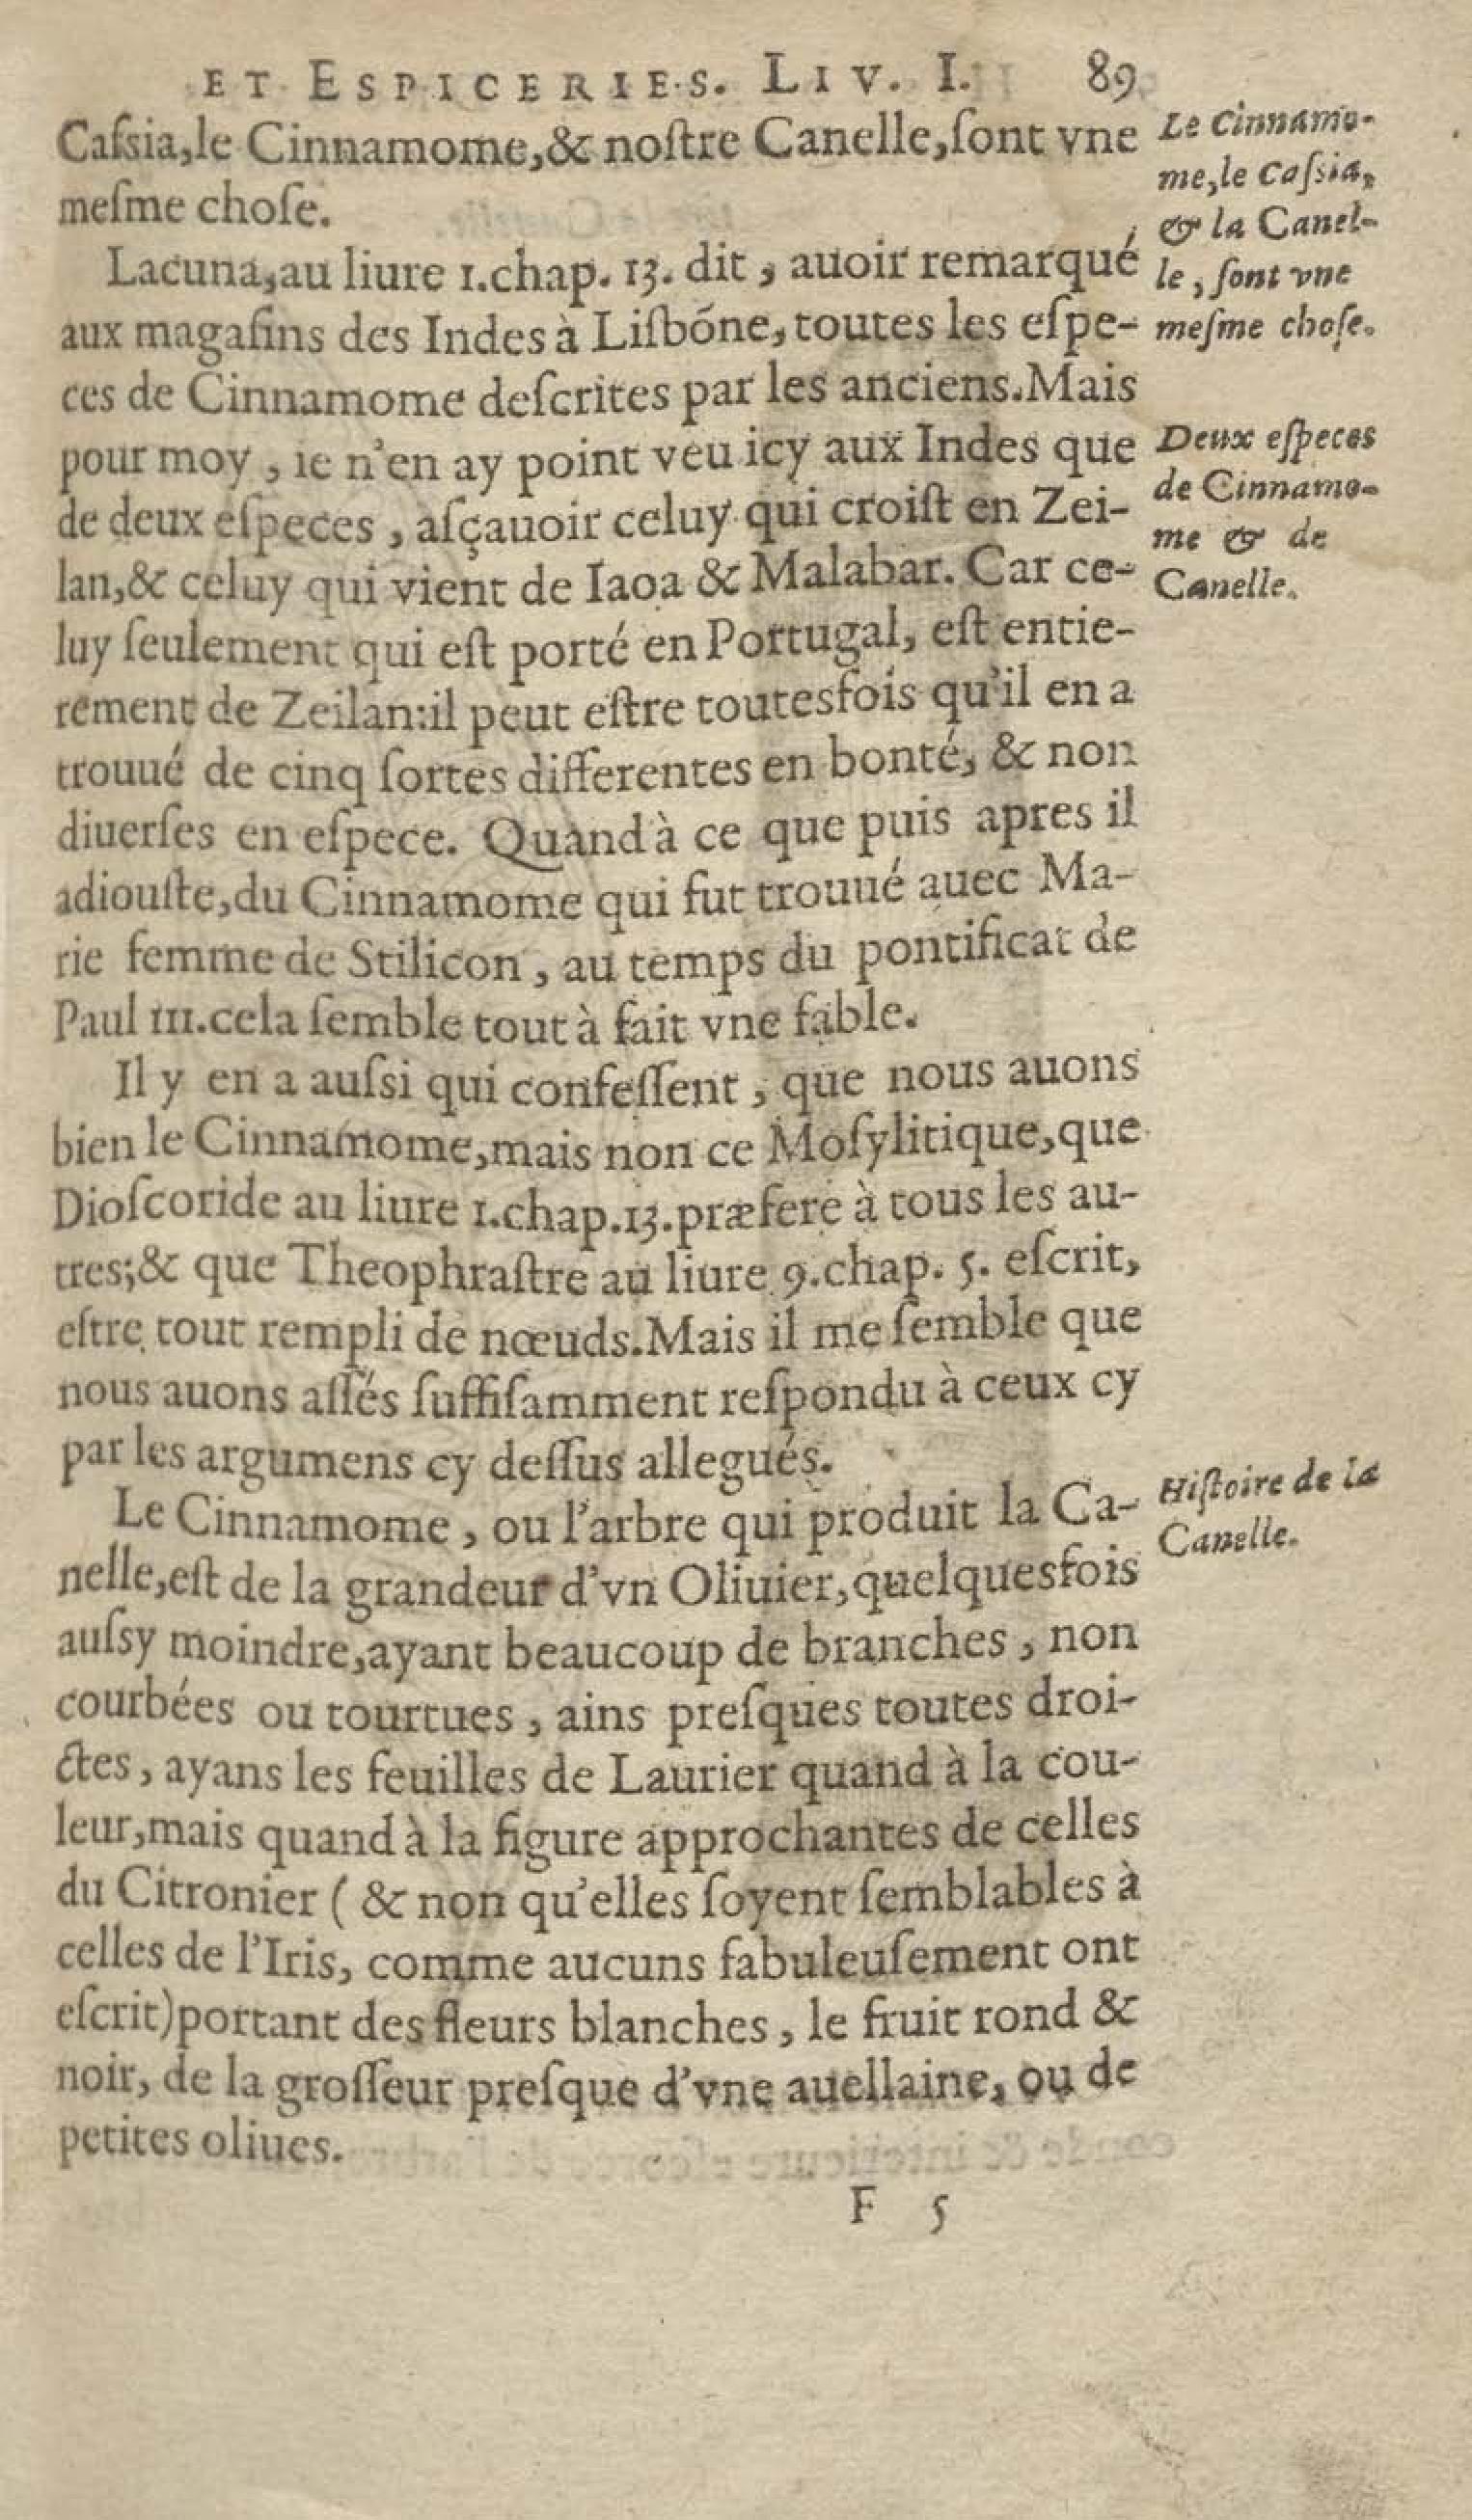 ET ESPICERIES. LIV. I. 89
Caſsia,le Cinnamome,& noſtre Canelle,ſont vne
meſme choſe.
Lacuna,au liure 1.chap. 13. dit , auoir remarqué
aux magaſins des Indes à Liſbóne, toutes les eſpe-
ces de Cinnamome deſcrites par les anciens.Mais
pour moy , ie n'en ay point veu icy aux Indes que
de deux eſpeces , aſçauoir celuy qui croiſt en Zei-
lan,& celuy qui vient de Iaoa & Malabar. Car ce-
luy ſeulement qui eſt porté en Portugal, eſt entie-
rement de Zeilan:il peut eſtre toutesfois qu'il en a
trouué de cinq ſortes differentes en bonté, & non
diuerſes en eſpece. Quand à ce que puis apres il
adiouſte,du Cinnamome qui fut trouué auec Ma-
rie femme de Stilicon , au temps du pontificat de
Paul III.cela ſemble tout à fait vne fable.
Il y en a auſsi qui confeſſent , que nous auons
bien le Cinnamome,mais non ce Moſylitique,que
Dioſcoride au liure 1.chap.13.præfere à tous les au-
tres;& que Theophraſtre au liure 9.chap. 5. eſcrit,
eſtre tout rempli de nœuds.Mais il me ſemble que
nous auons aſſés ſuffiſamment reſpondu à ceux cy
par les argumens cy deſſus allegués.
Le Cinnamome , ou l'arbre qui produit la Ca-
nelle,eſt de la grandeur d'vn Oliuier,quelquesfois
auſsy moindre,ayant beaucoup de branches , non
courbées ou tourtues , ains preſques toutes droi-
ctes , ayans les feuilles de Laurier quand à la cou-
leur,mais quand à la figure approchantes de celles
du Citronier ( & non qu'elles ſoyent ſemblables à
celles de l'Iris, comme aucuns fabuleuſement ont
eſcrit)portant des fleurs blanches , le fruit rond &
noir, de la groſſeur preſque d'vne auellaine, ou de
petites oliues.
F 5
Le Cinnamo-
me,le Caſsia,
& la Canel-
le , ſont vne
meſme choſe.
Deux eſpeces
de Cinnamo-
me & de
Canelle.
Hiſtoire de la
Canelle.